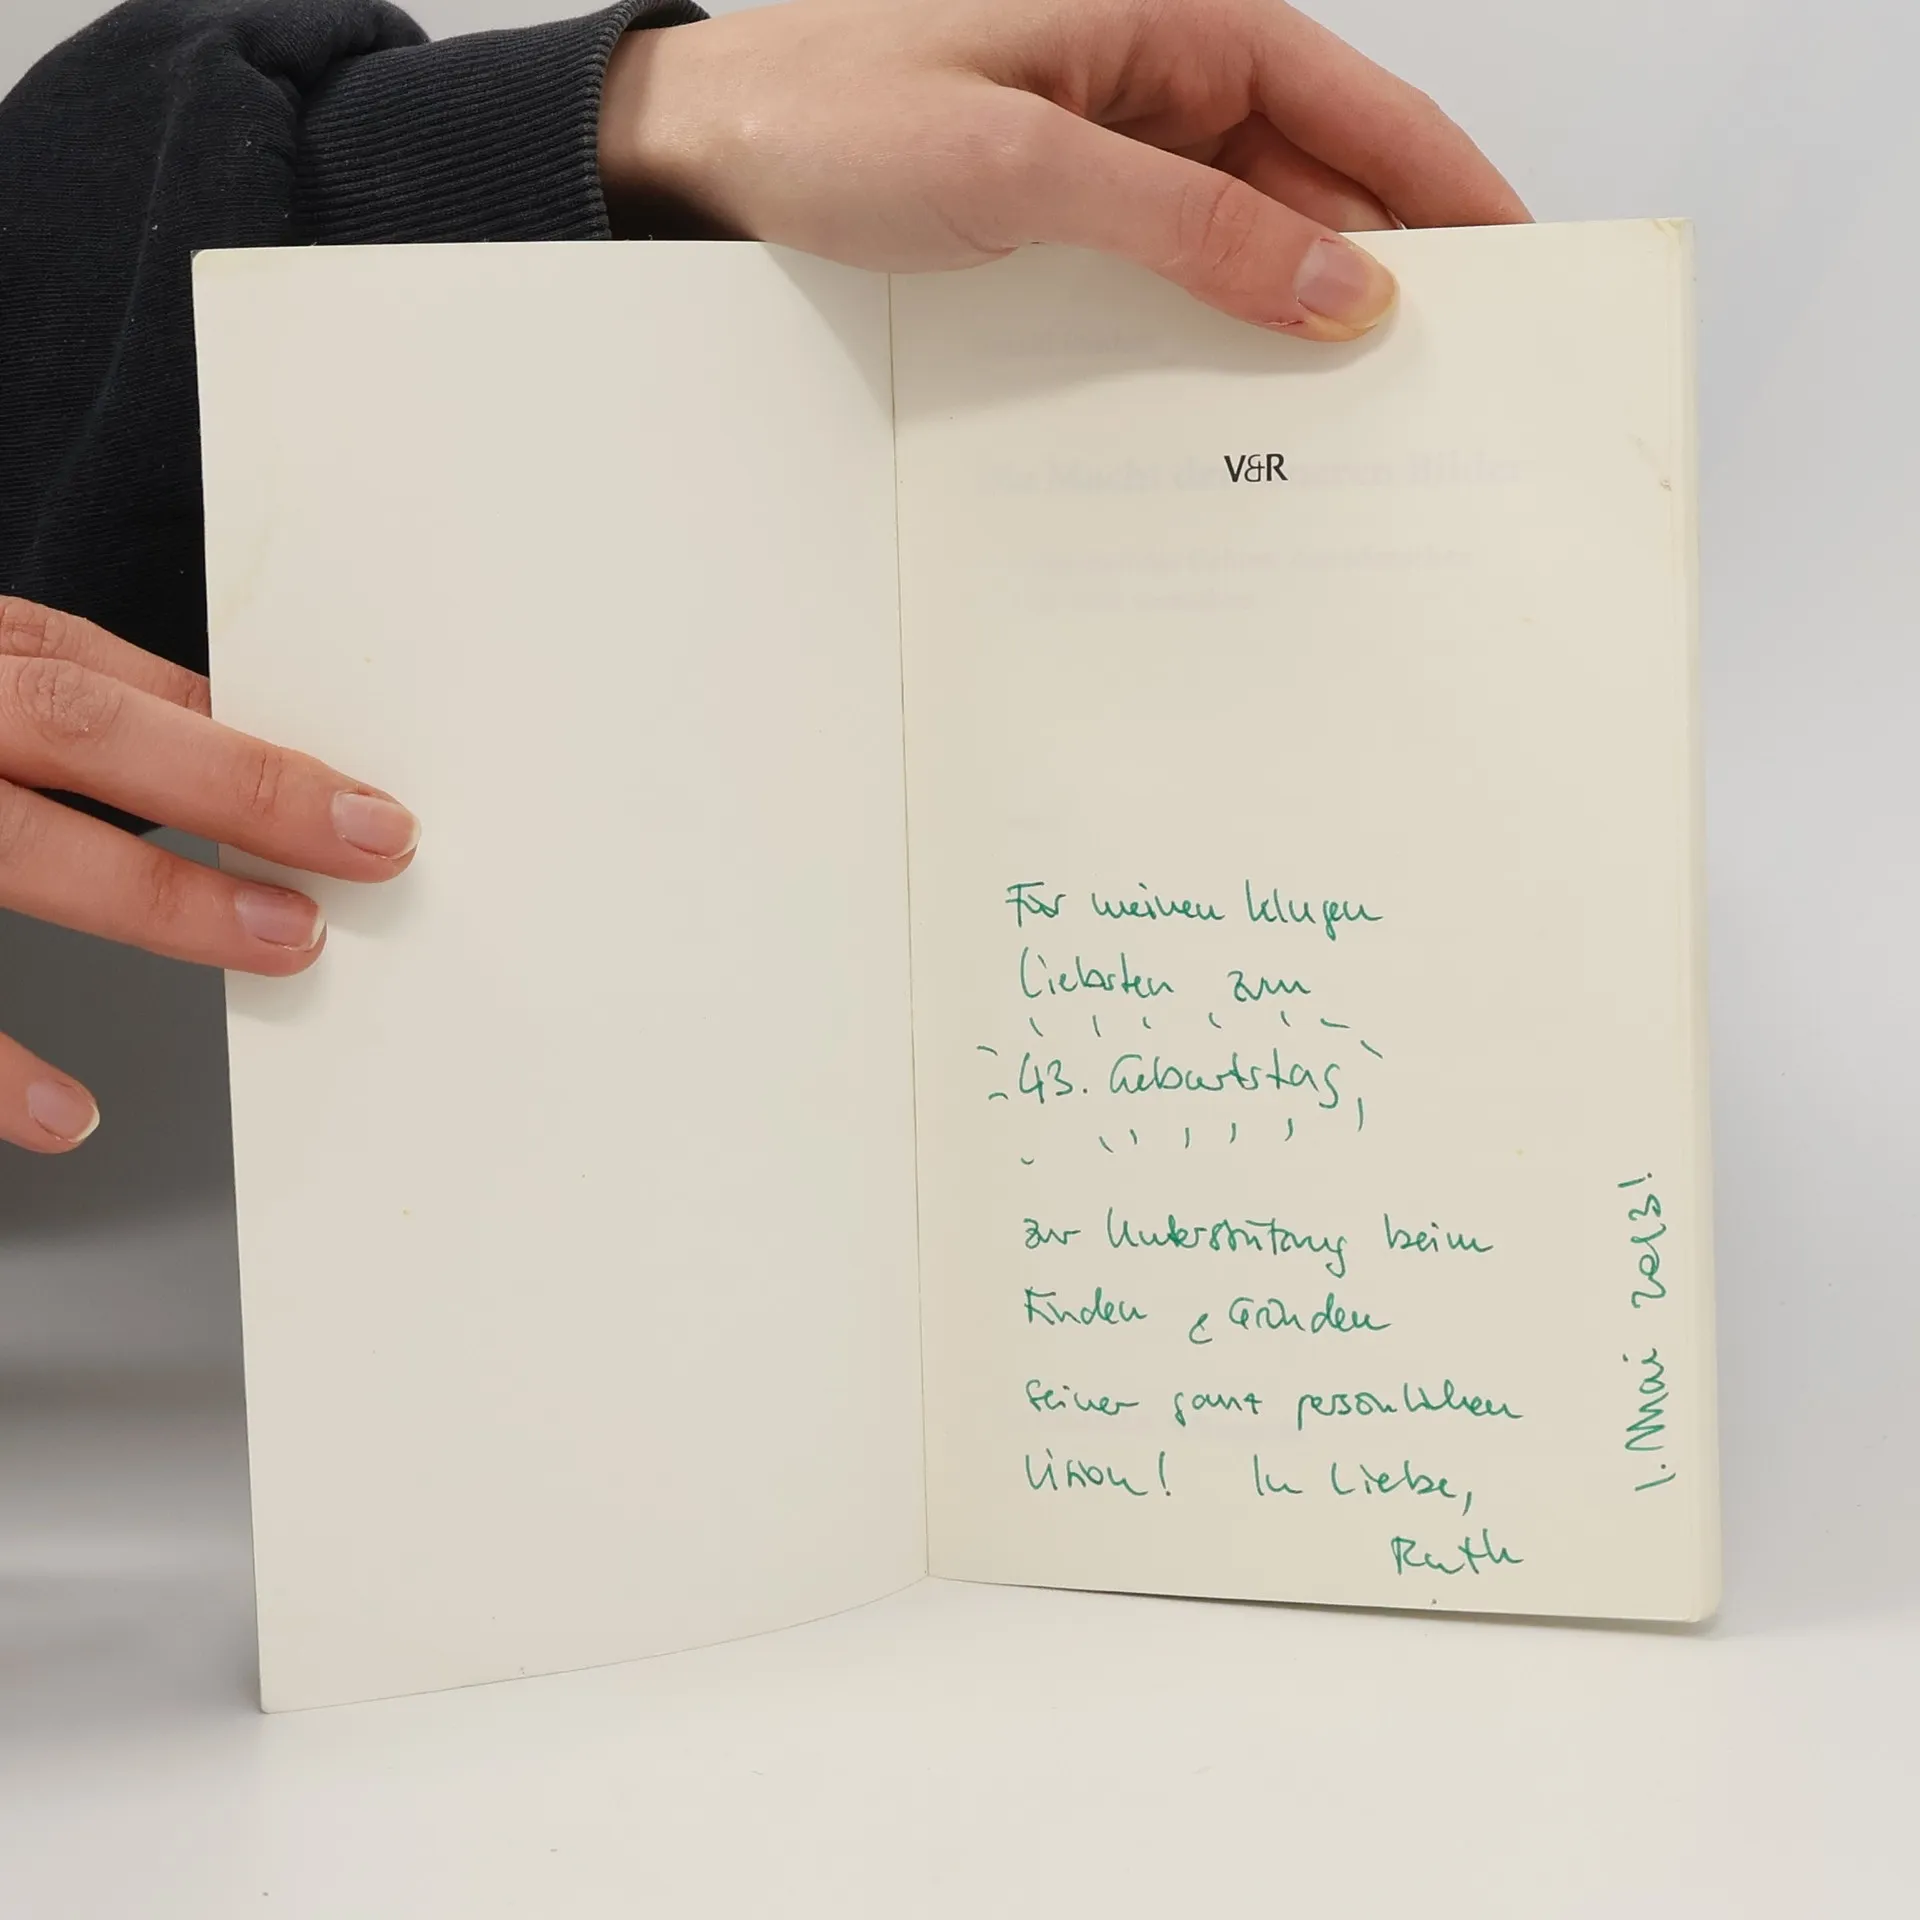 V&R
Für meinen klugen
Liebsten zum
43. Geburtstag,
zur Unterstützung beim
Finden & Gründen
seiner ganz persönlichen
Vision! In Liebe,
Ruth
1. Mai 2013!